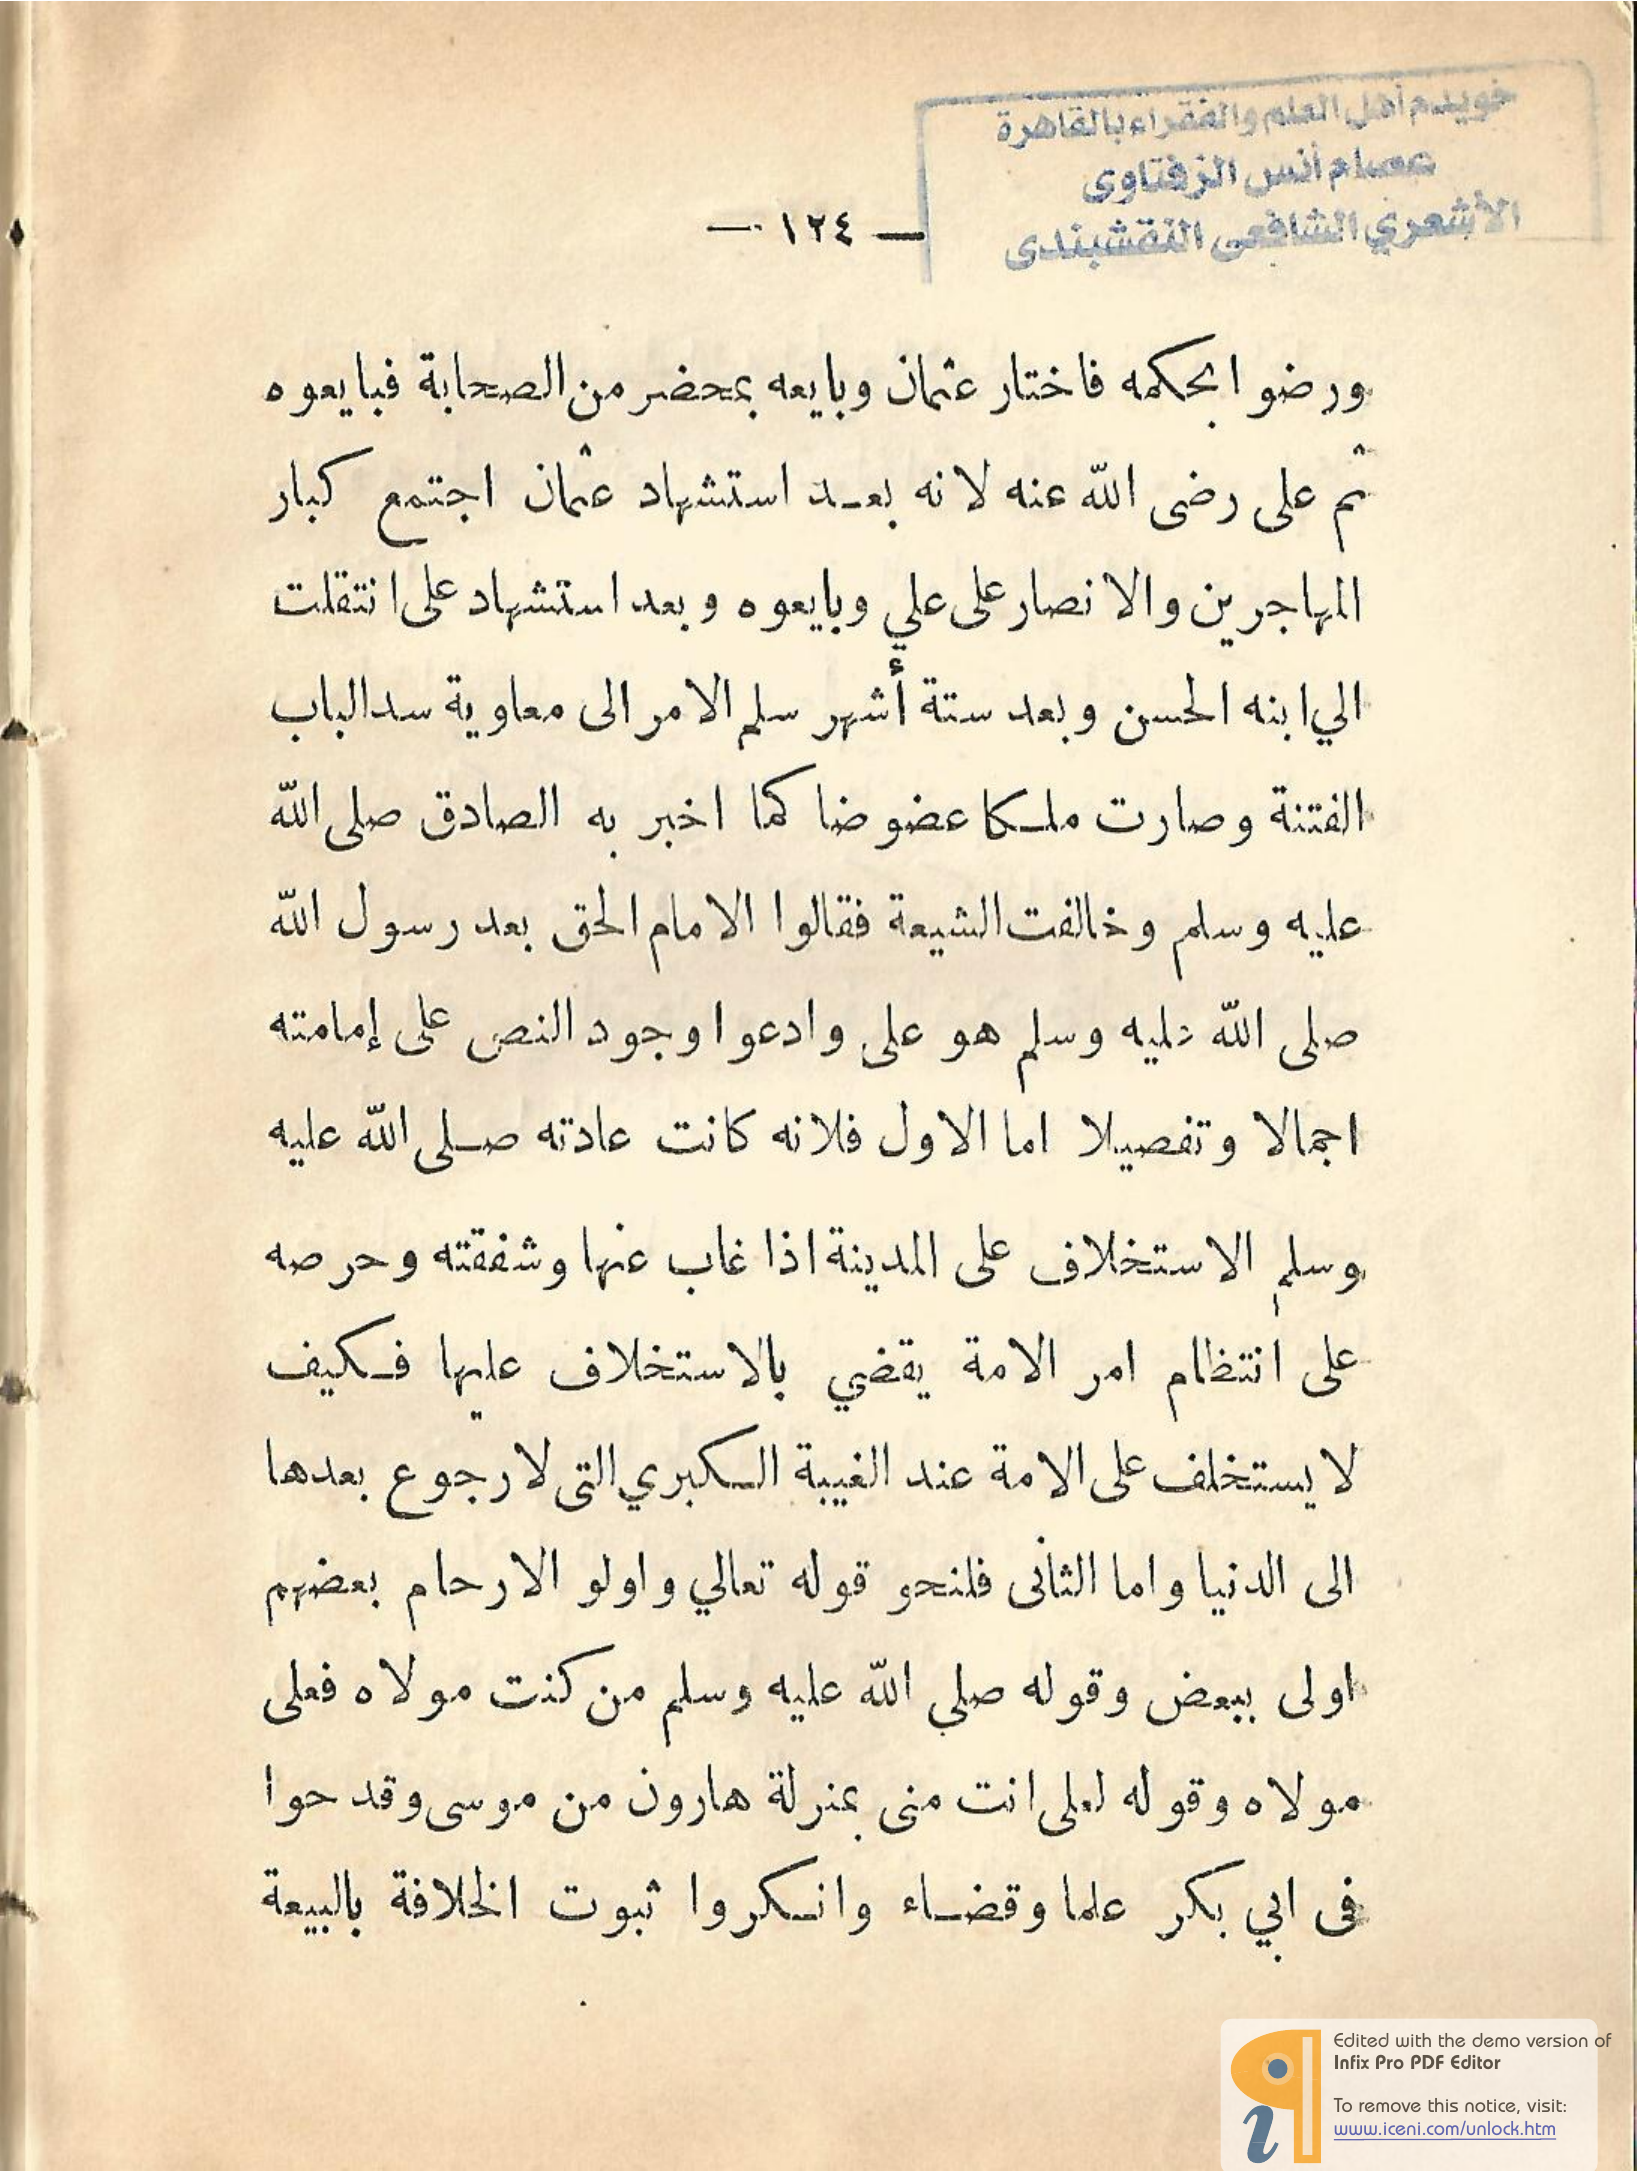 خويدم أهل العلم والفقراء بالقاهرة
عصام أنس الزفتاوى
الأشعري الشافعى النقشبندى
— ١٢٤ —
ورضوا بحكمه فاختار عثمان وبايعه بمحضر من الصحابة فبايعوه
ثم على رضى الله عنه لانه بعد استشهاد عثمان اجتمع كبار
المهاجرين والانصار على علي وبايعوه وبعد استشهاد على انتقلت
الي ابنه الحسن وبعد ستة أشهر سلم الامر الى معاوية سدالباب
الفتنة وصارت ملكا عضوضا كما اخبر به الصادق صلى الله
عليه وسلم وخالفت الشيعة فقالوا الامام الحق بعد رسول الله
صلى الله عليه وسلم هو على وادعوا وجود النص على إمامته
اجمالا وتفصيلا اما الاول فلانه كانت عادته صلى الله عليه
وسلم الاستخلاف على المدينة اذا غاب عنها وشفقته وحرصه
على انتظام امر الامة يقضي بالاستخلاف عليها فكيف
لا يستخلف على الامة عند الغيبة الكبري التى لا رجوع بعدها
الى الدنيا واما الثانى فلنحو قوله تعالي واولو الارحام بعضهم
اولى ببعض وقوله صلي الله عليه وسلم من كنت مولاه فعلى
مولاه وقوله لعلى انت منى بمنزلة هارون من موسى وقد حوا
فى ابي بكر علما وقضاء وانكروا ثبوت الخلافة بالبيعة
Edited with the demo version of
Infix Pro PDF Editor
To remove this notice, visit:
www.iceni.com/unlock.htm